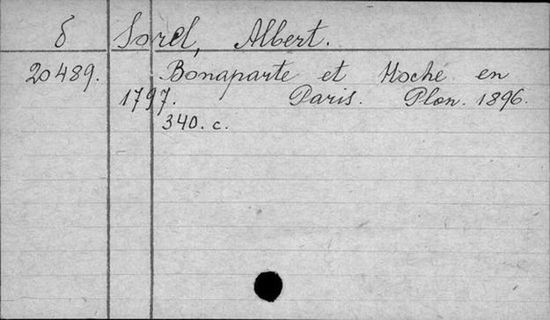 δ Sorel, Albert.
20489. Bonaparte et Hoche en
1797. Paris. Plon. 1896.
340. c.